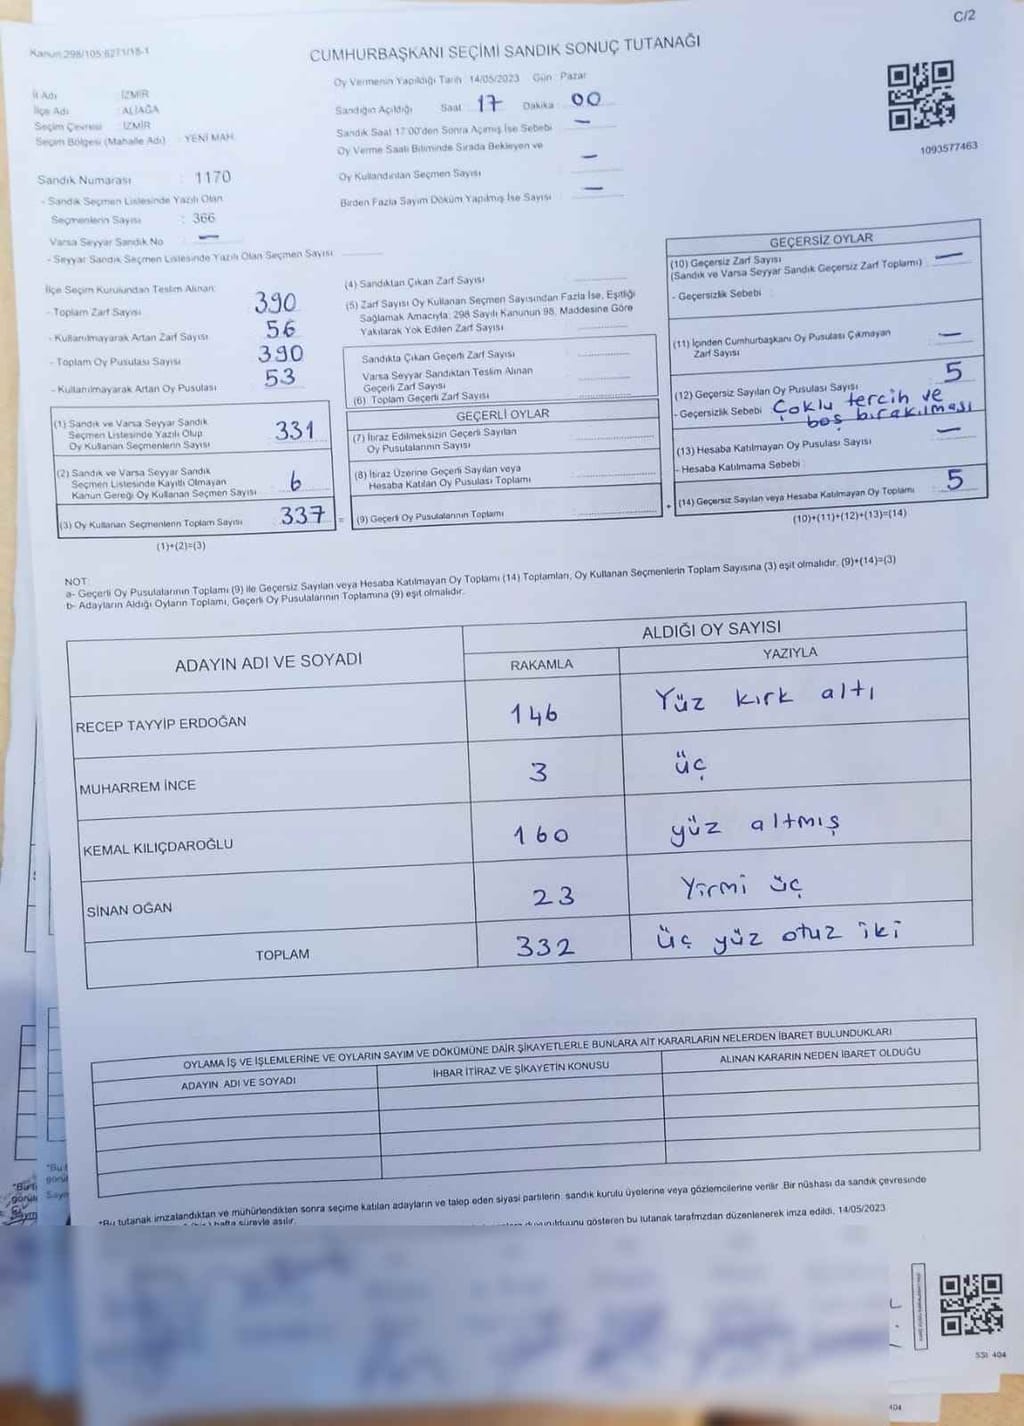 C/2
Kanun 298/105 6271/18-1
CUMHURBAŞKANI SEÇİMİ SANDIK SONUÇ TUTANAĞI
İl Adı : İZMİR
İlçe Adı : ALİAĞA
Seçim Çevresi : İZMİR
Seçim Bölgesi (Mahalle Adı) : YENİ MAH.
Sandık Numarası : 1170
- Sandık Seçmen Listesinde Yazılı Olan
Seçmenlerin Sayısı : 366
Varsa Seyyar Sandık No : —
- Seyyar Sandık Seçmen Listesinde Yazılı Olan Seçmen Sayısı
Oy Vermenin Yapıldığı Tarih : 14/05/2023 Gün : Pazar
Sandığın Açıldığı Saat 17 Dakika 00
Sandık Saat 17:00'den Sonra Açılmış İse Sebebi —
Oy Verme Saati Bitiminde Sırada Bekleyen ve
Oy Kullandırılan Seçmen Sayısı —
Birden Fazla Sayım Döküm Yapılmış İse Sayısı —
1093577463
İlçe Seçim Kurulundan Teslim Alınan:
- Toplam Zarf Sayısı 390
- Kullanılmayarak Artan Zarf Sayısı 56
- Toplam Oy Pusulası Sayısı 390
- Kullanılmayarak Artan Oy Pusulası 53
(1) Sandık ve Varsa Seyyar Sandık
Seçmen Listesinde Yazılı Olup
Oy Kullanan Seçmenlerin Sayısı 331
(2) Sandık ve Varsa Seyyar Sandık
Seçmen Listesinde Kayıtlı Olmayan
Kanun Gereği Oy Kullanan Seçmen Sayısı 6
(3) Oy Kullanan Seçmenlerin Toplam Sayısı 337
(1)+(2)=(3)
(4) Sandıktan Çıkan Zarf Sayısı
(5) Zarf Sayısı Oy Kullanan Seçmen Sayısından Fazla İse, Eşitliği
Sağlamak Amacıyla, 298 Sayılı Kanunun 98. Maddesine Göre
Yakılarak Yok Edilen Zarf Sayısı
Sandıkta Çıkan Geçerli Zarf Sayısı
Varsa Seyyar Sandıktan Teslim Alınan
Geçerli Zarf Sayısı
(6) Toplam Geçerli Zarf Sayısı
GEÇERLİ OYLAR
(7) İtiraz Edilmeksizin Geçerli Sayılan
Oy Pusulalarının Sayısı
(8) İtiraz Üzerine Geçerli Sayılan veya
Hesaba Katılan Oy Pusulası Toplamı
= (9) Geçerli Oy Pusulalarının Toplamı
GEÇERSİZ OYLAR
(10) Geçersiz Zarf Sayısı —
(Sandık ve Varsa Seyyar Sandık Geçersiz Zarf Toplamı)
- Geçersizlik Sebebi :
(11) İçinden Cumhurbaşkanı Oy Pusulası Çıkmayan —
Zarf Sayısı
(12) Geçersiz Sayılan Oy Pusulası Sayısı 5
- Geçersizlik Sebebi Çoklu tercih ve
boş bırakılması
(13) Hesaba Katılmayan Oy Pusulası Sayısı —
- Hesaba Katılmama Sebebi :
+ (14) Geçersiz Sayılan veya Hesaba Katılmayan Oy Toplamı 5
(10)+(11)+(12)+(13)=(14)
NOT:
a- Geçerli Oy Pusulalarının Toplamı (9) ile Geçersiz Sayılan veya Hesaba Katılmayan Oy Toplamı (14) Toplamları, Oy Kullanan Seçmenlerin Toplam Sayısına (3) eşit olmalıdır. (9)+(14)=(3)
b- Adayların Aldığı Oyların Toplamı, Geçerli Oy Pusulalarının Toplamına (9) eşit olmalıdır.
ADAYIN ADI VE SOYADI
ALDIĞI OY SAYISI
RAKAMLA YAZIYLA
RECEP TAYYİP ERDOĞAN 146 Yüz kırk altı
MUHARREM İNCE 3 üç
KEMAL KILIÇDAROĞLU 160 yüz altmış
SİNAN OĞAN 23 Yirmi üç
TOPLAM 332 üç yüz otuz iki
OYLAMA İŞ VE İŞLEMLERİNE VE OYLARIN SAYIM VE DÖKÜMÜNE DAİR ŞİKAYETLERLE BUNLARA AİT KARARLARIN NELERDEN İBARET BULUNDUKLARI
ADAYIN ADI VE SOYADI İHBAR İTİRAZ VE ŞİKAYETİN KONUSU ALINAN KARARIN NEDEN İBARET OLDUĞU
*Bu tutanak imzalandıktan ve mühürlendikten sonra seçime katılan adayların ve talep eden siyasi partilerin sandık kurulu üyelerine veya gözlemcilerine verilir. Bir nüshası da sandık çevresinde
hafta süreyle asılır.
gösteren bu tutanak tarafımızdan düzenlenerek imza edildi. 14/05/2023
SSI 404
404